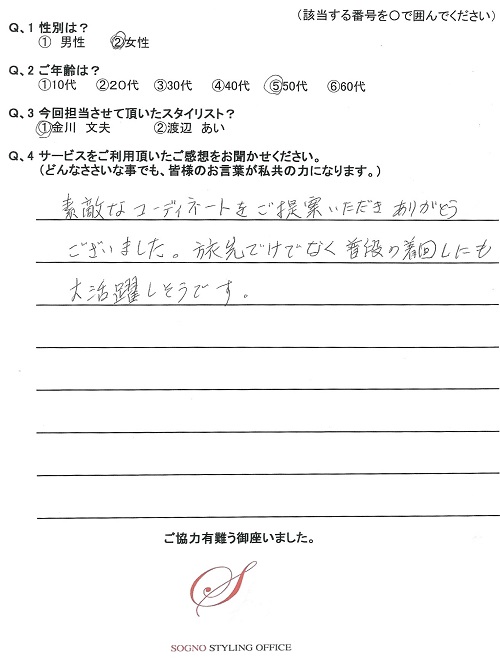 (該当する番号を○で囲んでください)
Q、1 性別は?
① 男性 ②女性
Q、2 ご年齢は?
①10代 ②20代 ③30代 ④40代 ⑤50代 ⑥60代
Q、3 今回担当させて頂いたスタイリスト?
①金川 文夫 ②渡辺 あい
Q、4 サービスをご利用頂いたご感想をお聞かせください。
(どんなささいな事でも、皆様のお言葉が私共の力になります。)
素敵なコーディネートをご提案いただきありがとう
ございました。旅先でけでなく普段の着回しにも
大活躍しそうです。
ご協力有難う御座いました。
S
SOGNO STYLING OFFICE